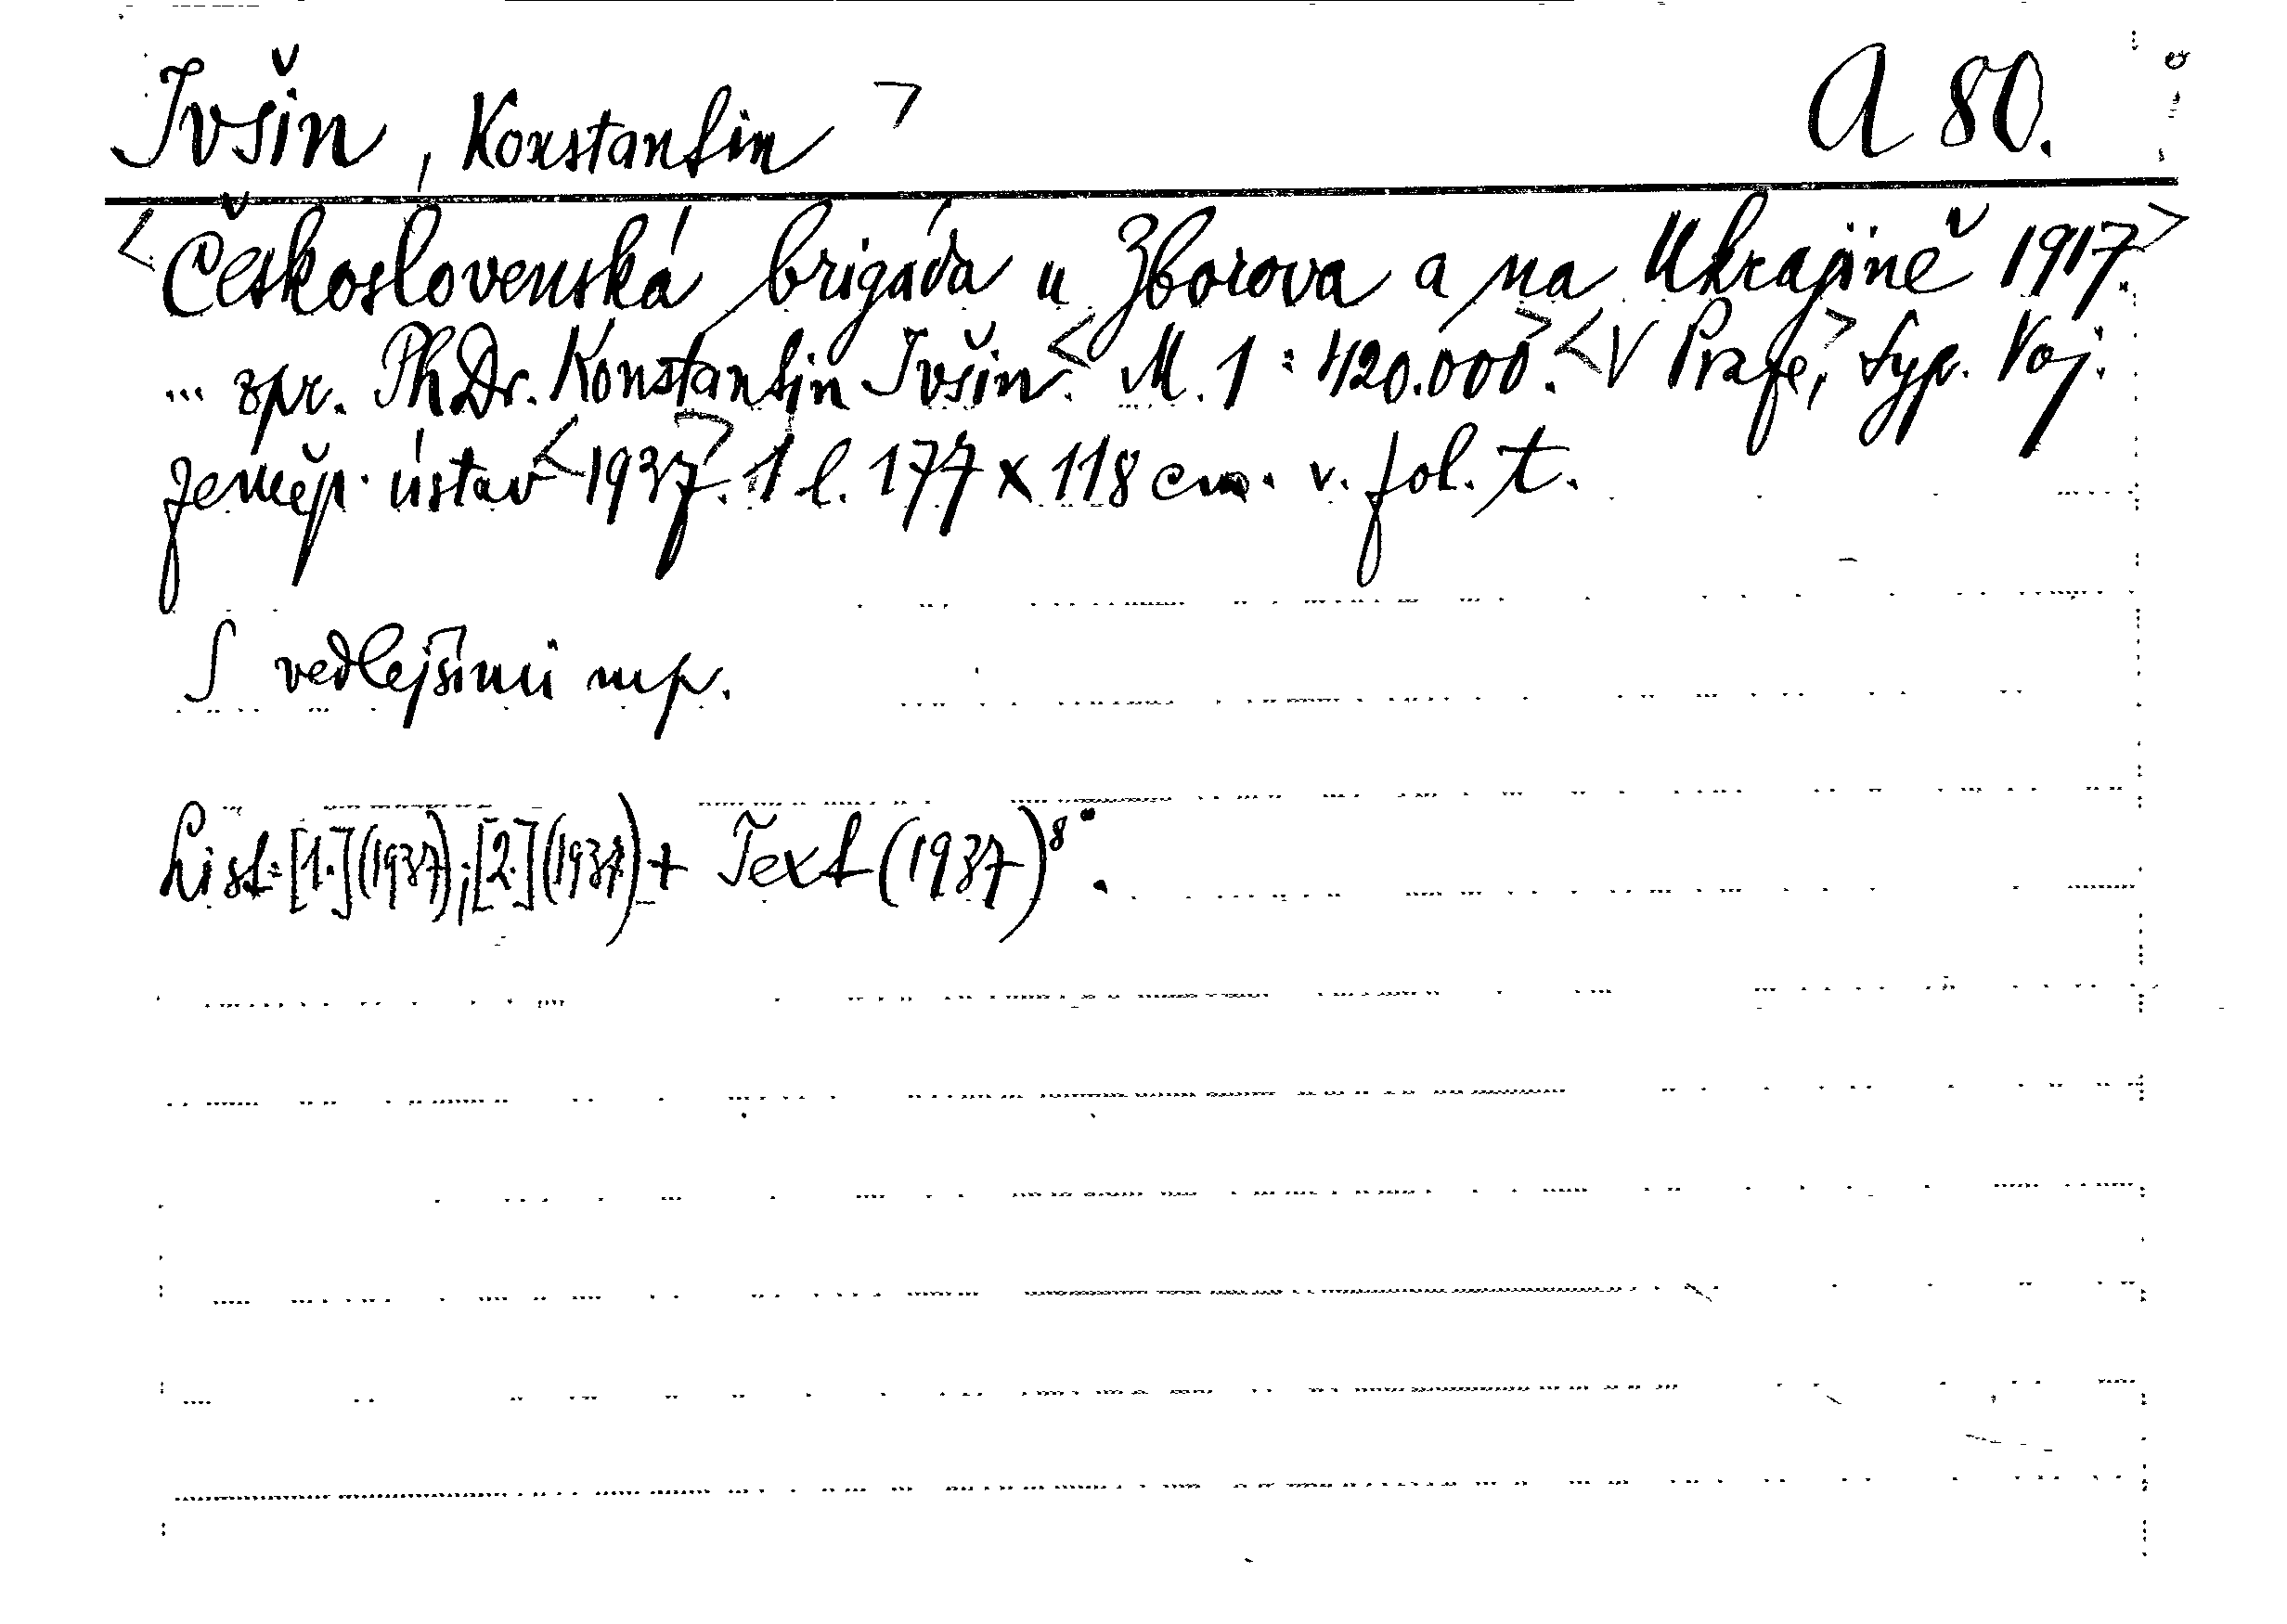 Ivšin, Konstantin > A 80.
<Československá brigáda u Zborova a na Ukrajině 1917.>
... zpr. PhDr. Konstantin Ivšin.< M. 1 : 420.000>.<V Praze,> typ. Voj.
zeměp. ústav <1937>. 1 l. 177 x 118 cm. v. fol. t.
S vedlejšími mp.
List: [1.](1937); [2.](1937) + Text (1937) 8°.